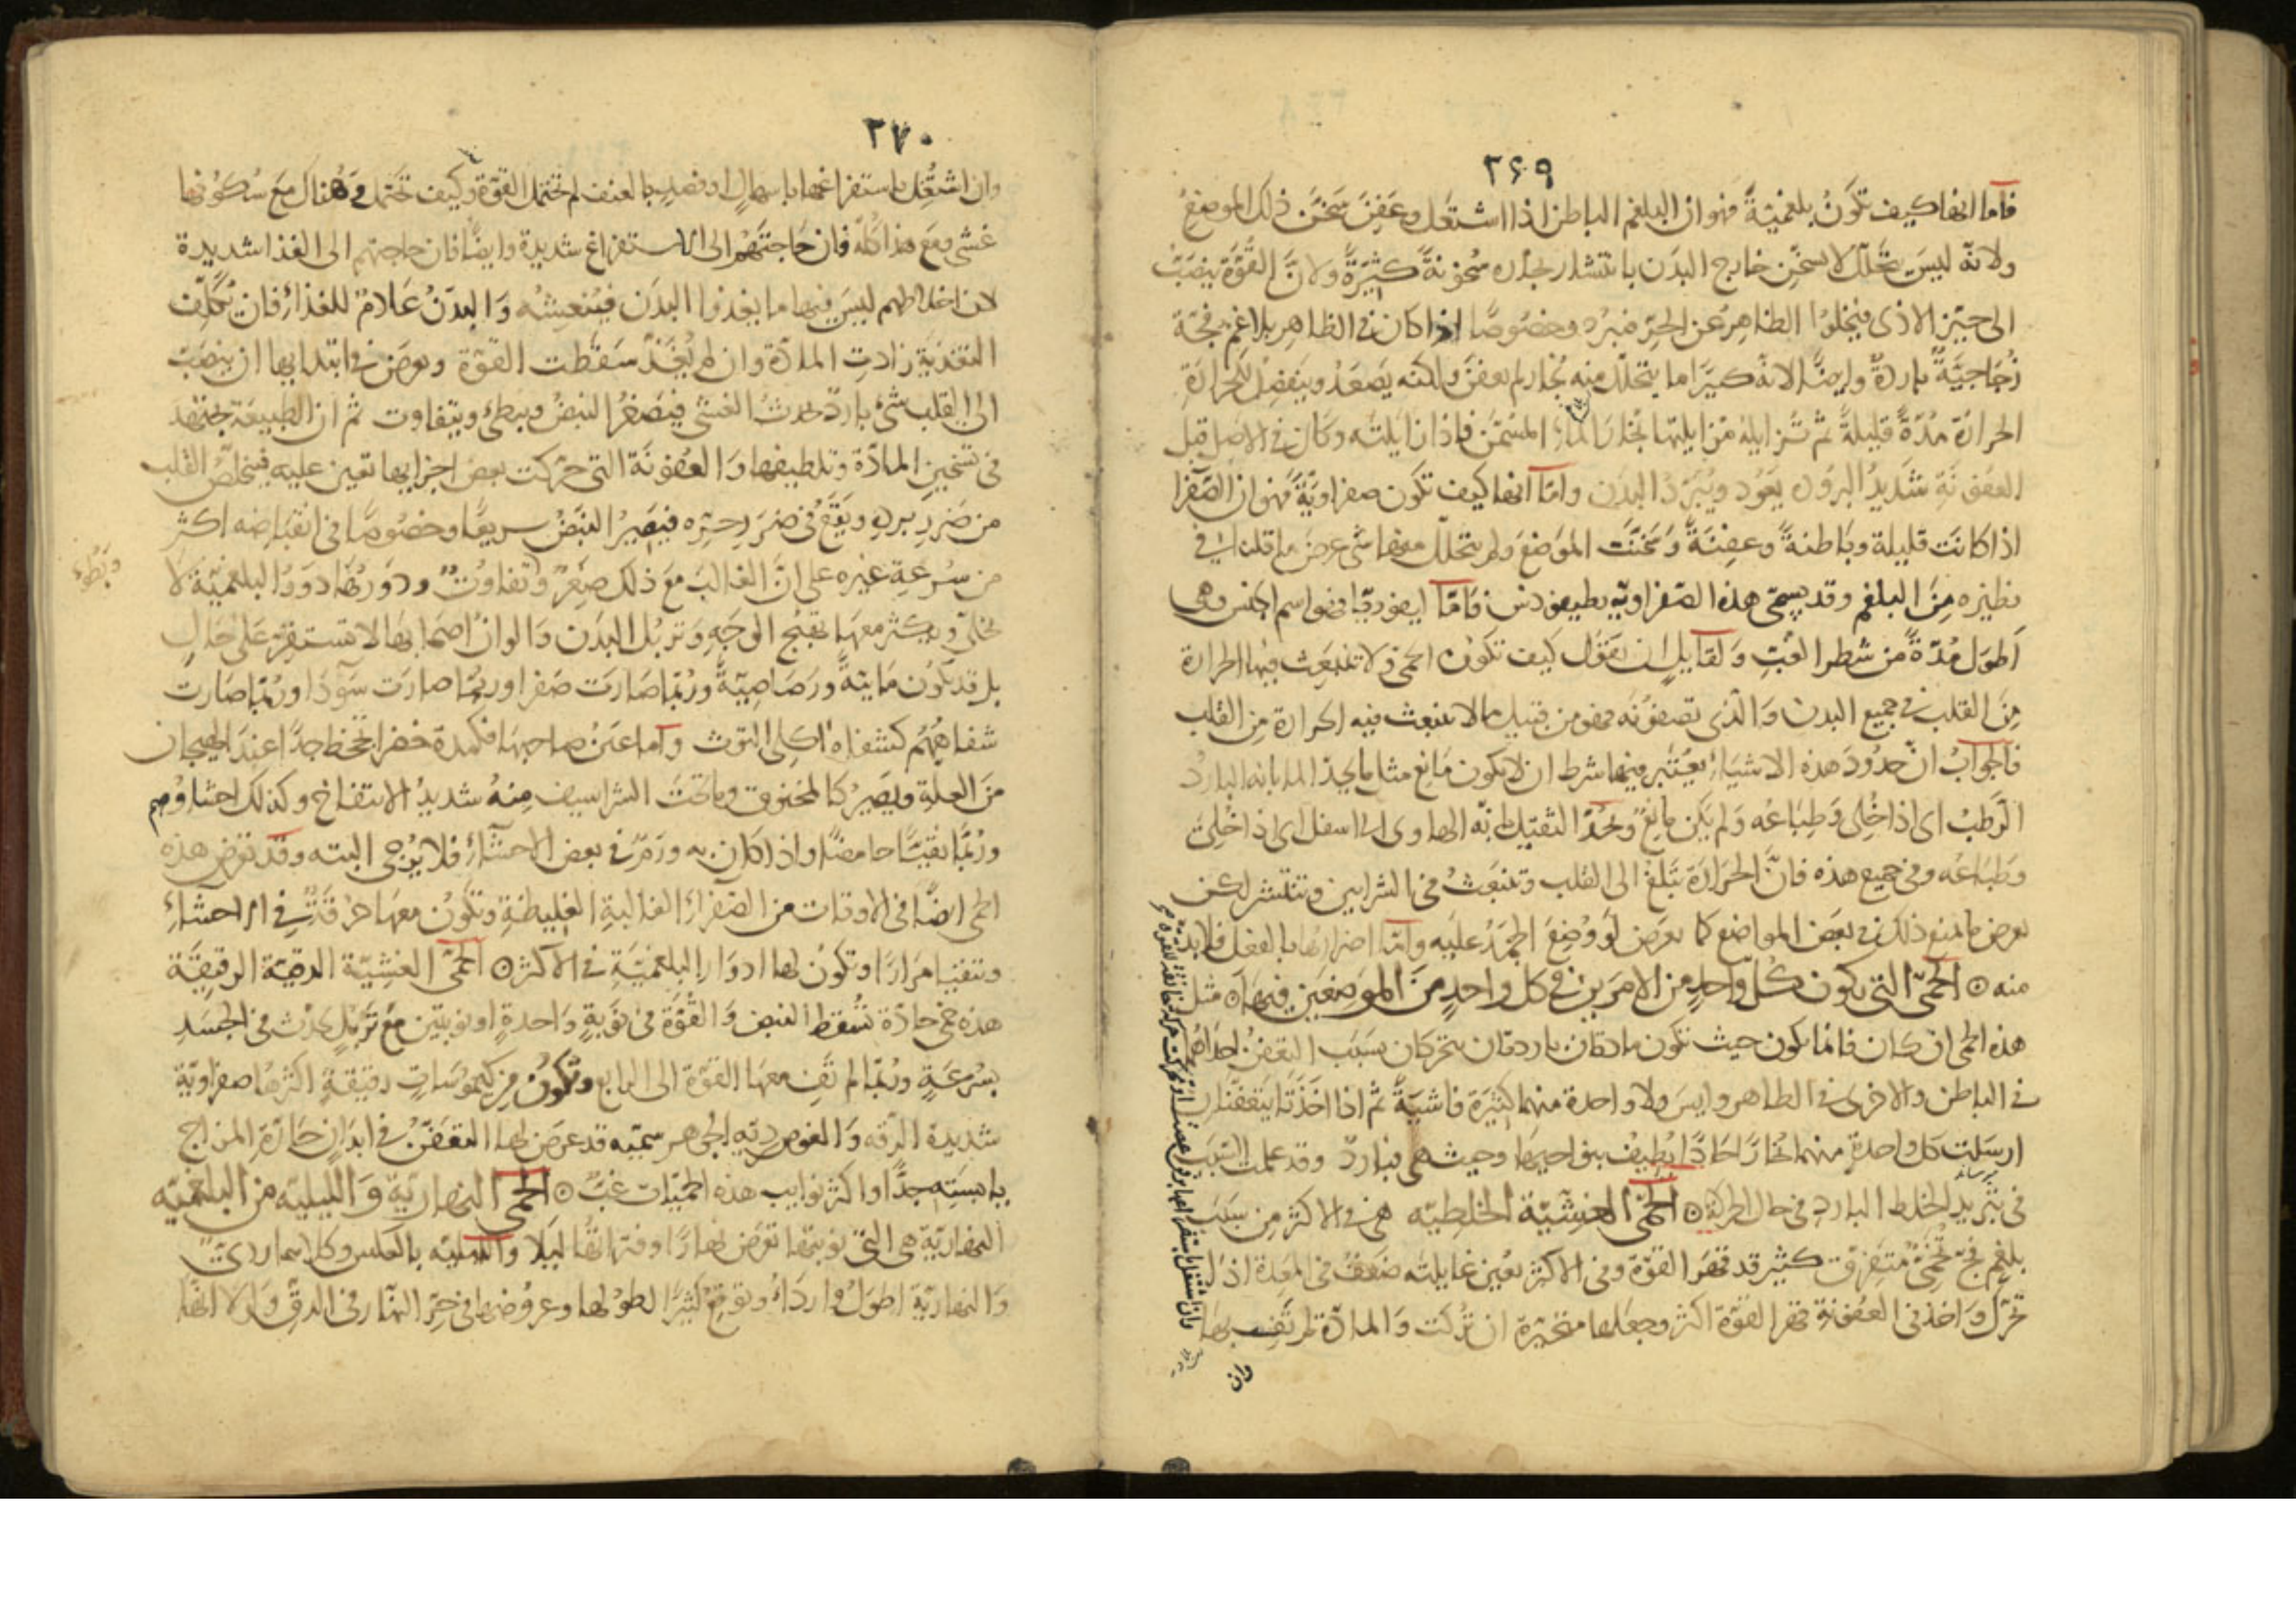 ٢٦٩
فاما انها كيف تكون بلغمية فهو ان البلغم الباطن اذا اشتعل وعفن سخن ذلك الموضع
ولانه ليس يتحلل لا يسخن خارج البدن بانتشار بخاره سخونة كثيرة ولان القوة ينصب
الى حيز الاذى فيخلوا الظاهر عن الحر فيبرد وخصوصا اذا كان في الظاهر بلاغم فجة
زجاجية باردة وايضا لانه كثيرا ما يتحلل منه بخار لم يعفن ولكنه يصعد وينفصل بالحرارة
الحرارة مدة قليلة ثم تزايله مزايلتها بخار الماء المسخن فاذا زايلته وكان في الاصل قبل
العفونة شديد البرد يعود ويبرد البدن واما انها كيف تكون صفراوية فهو ان الصفرا
اذا كانت قليلة وباطنة وعفنة وسخنت الموضع ولم يتحلل منها شي عرض ما قلنا في
نظيره من البلغم وقد يسمى هذه الصفراويه بطيفودس فاما ايفوريا فهو اسم الجنس وهى
اطول مدة من شطر الغب ولقايل ان يقول كيف تكون الحمى ولا تنبعث فيها الحرارة
من القلب في جميع البدن والذي تصفونه فهو من قبيل ما لا ينبعث فيه الحرارة من القلب
فالجواب ان حدود هذه الاشياء يعتبر فيها شرط ان لا يكون مانع مثل ما يحد الماء بانه البارد
الرطب اى اذا خلى وطباعه ولم يكن مانع وبحد الثقيل بانه الهاوى الى اسفل اى اذا خلى
وطباعه وفي جميع هذه فان الحرارة تبلغ الى القلب وتنبعث في الشرايين وتنتشر لكن
يعرض ما يمنع ذلك في بعض المواضع كما يعرض لو وضع الجمد عليه واما اضرارها بالفعل فلا بد
منه الحمى التي يكون كل واحد من الامرين في كل واحد من الموضعين فيها مثل
هذه الحمى ان كان فانما يكون حيث تكون مادتان باردتان يتحركان بسبب التعفن احداهما
في الباطن والاخرى في الظاهر وليس ولا واحدة منهما كثيرة فاشية ثم اذا اخذتا يتعفنان
ارسلت كل واحدة منهما بخارا حادا يطيف بنواحيها وحيث هى فبارد وقد علمت السبب
في تبريد الخلط البارد في حال الحركة الحمى الغشية الخلطيه هى في الاكثر من بسبب
بلغم فج تخمى متفرق كثير قد قهر القوة وفي الاكثر يعين غايلته ضعف في المعدة اذا
تحرك واخذ في العفونة قهر القوة اكثر وجعلها متحيرة ان تركت والمادة لم تف بها
وان
٢٧٠
وان اشتغل باستفراغها باسهال او فصد بالعنف لم تحتمل القوة وكيف تحتمل وهناك مع سكونها
غشى ومع هذا كله فان حاجتهم الى الاستفراغ شديدة وايضا فان حاجتهم الى الغذا شديدة
لان اخلاطهم ليس فيها ما يغذوا البدن فينعشه والبدن عادم للغذاء فان تكلف
التغذية زادت المادة وان لم يغذ سقطت القوة ويعرض في ابتدايها ان ينصب
الى القلب شئ بارد يحدث الغشى فيصغر النبض ويبطئ ويتفاوت ثم ان الطبيعة يجتهد
في تسخين المادة وتلطيفها والعفونة التي حركت بعض اجزايها تعين عليه فيتخلص القلب
من ضرر برده ويقع في ضرر حره فيصير النبض سريعا وخصوصا في انقباضه اكثر
من سرعة غيره على ان الغالب مع ذلك صغر وتفاوت ودورها دور البلغمية لا
وبطوء
تخل ويكثر معها تهيج الوجه وتربل البدن والوان اصحابها لا تستقر على حال
بل قد يكون مائية ورصاصية وربما صارت صفرا وربما صارت سودا وربما صارت
شفاههم كشفاه اكلى التوث واما عين صاحبها فكمدة خضرا تجحظ جدا عند الهيجان
من العلة ويصير كالمخنوق وما تحت الشراسيف منه شديد الانتفاخ وكذلك احشاؤهم
وربما تقيئا حامضا واذا كان به ورم في بعض الاحشاء فلا يرجى البته وقد تعرض هذه
الحمى ايضا في الاوقات من الصفراء الغالبة الغليظة وتكون معها حرقة في الاحشاء
وتتقيا مرارا وتكون لها ادوار البلغمية في الاكثر الحمى الغشية الدقية الرقيقة
هذه حمى حادة تسقط النبض والقوة في نوبة واحدة او نوبتين مع تربل يحدث في الجسد
بسرعة وربما لم تف معها القوة الى الرابع وتكون من كيموسات رقيقة اكثرها صفراوية
شديدة الرقه والغوص ردية الجوهر سميه قد عرض لها التعفن في ابدان حارة المزاج
يابسته جدا واكثر نوايب هذه الحميات غب الحمى النهارية والليليه من البلغميه
النهارية هى التي نوبتها تعرض نهارا وفتراتها ليلا والليليه بالعكس وكلاهما ردى
والنهارية اطول واردأ وتوقع كثيرا لطولها وعروضها في حر النهار في الدق ولولا انها